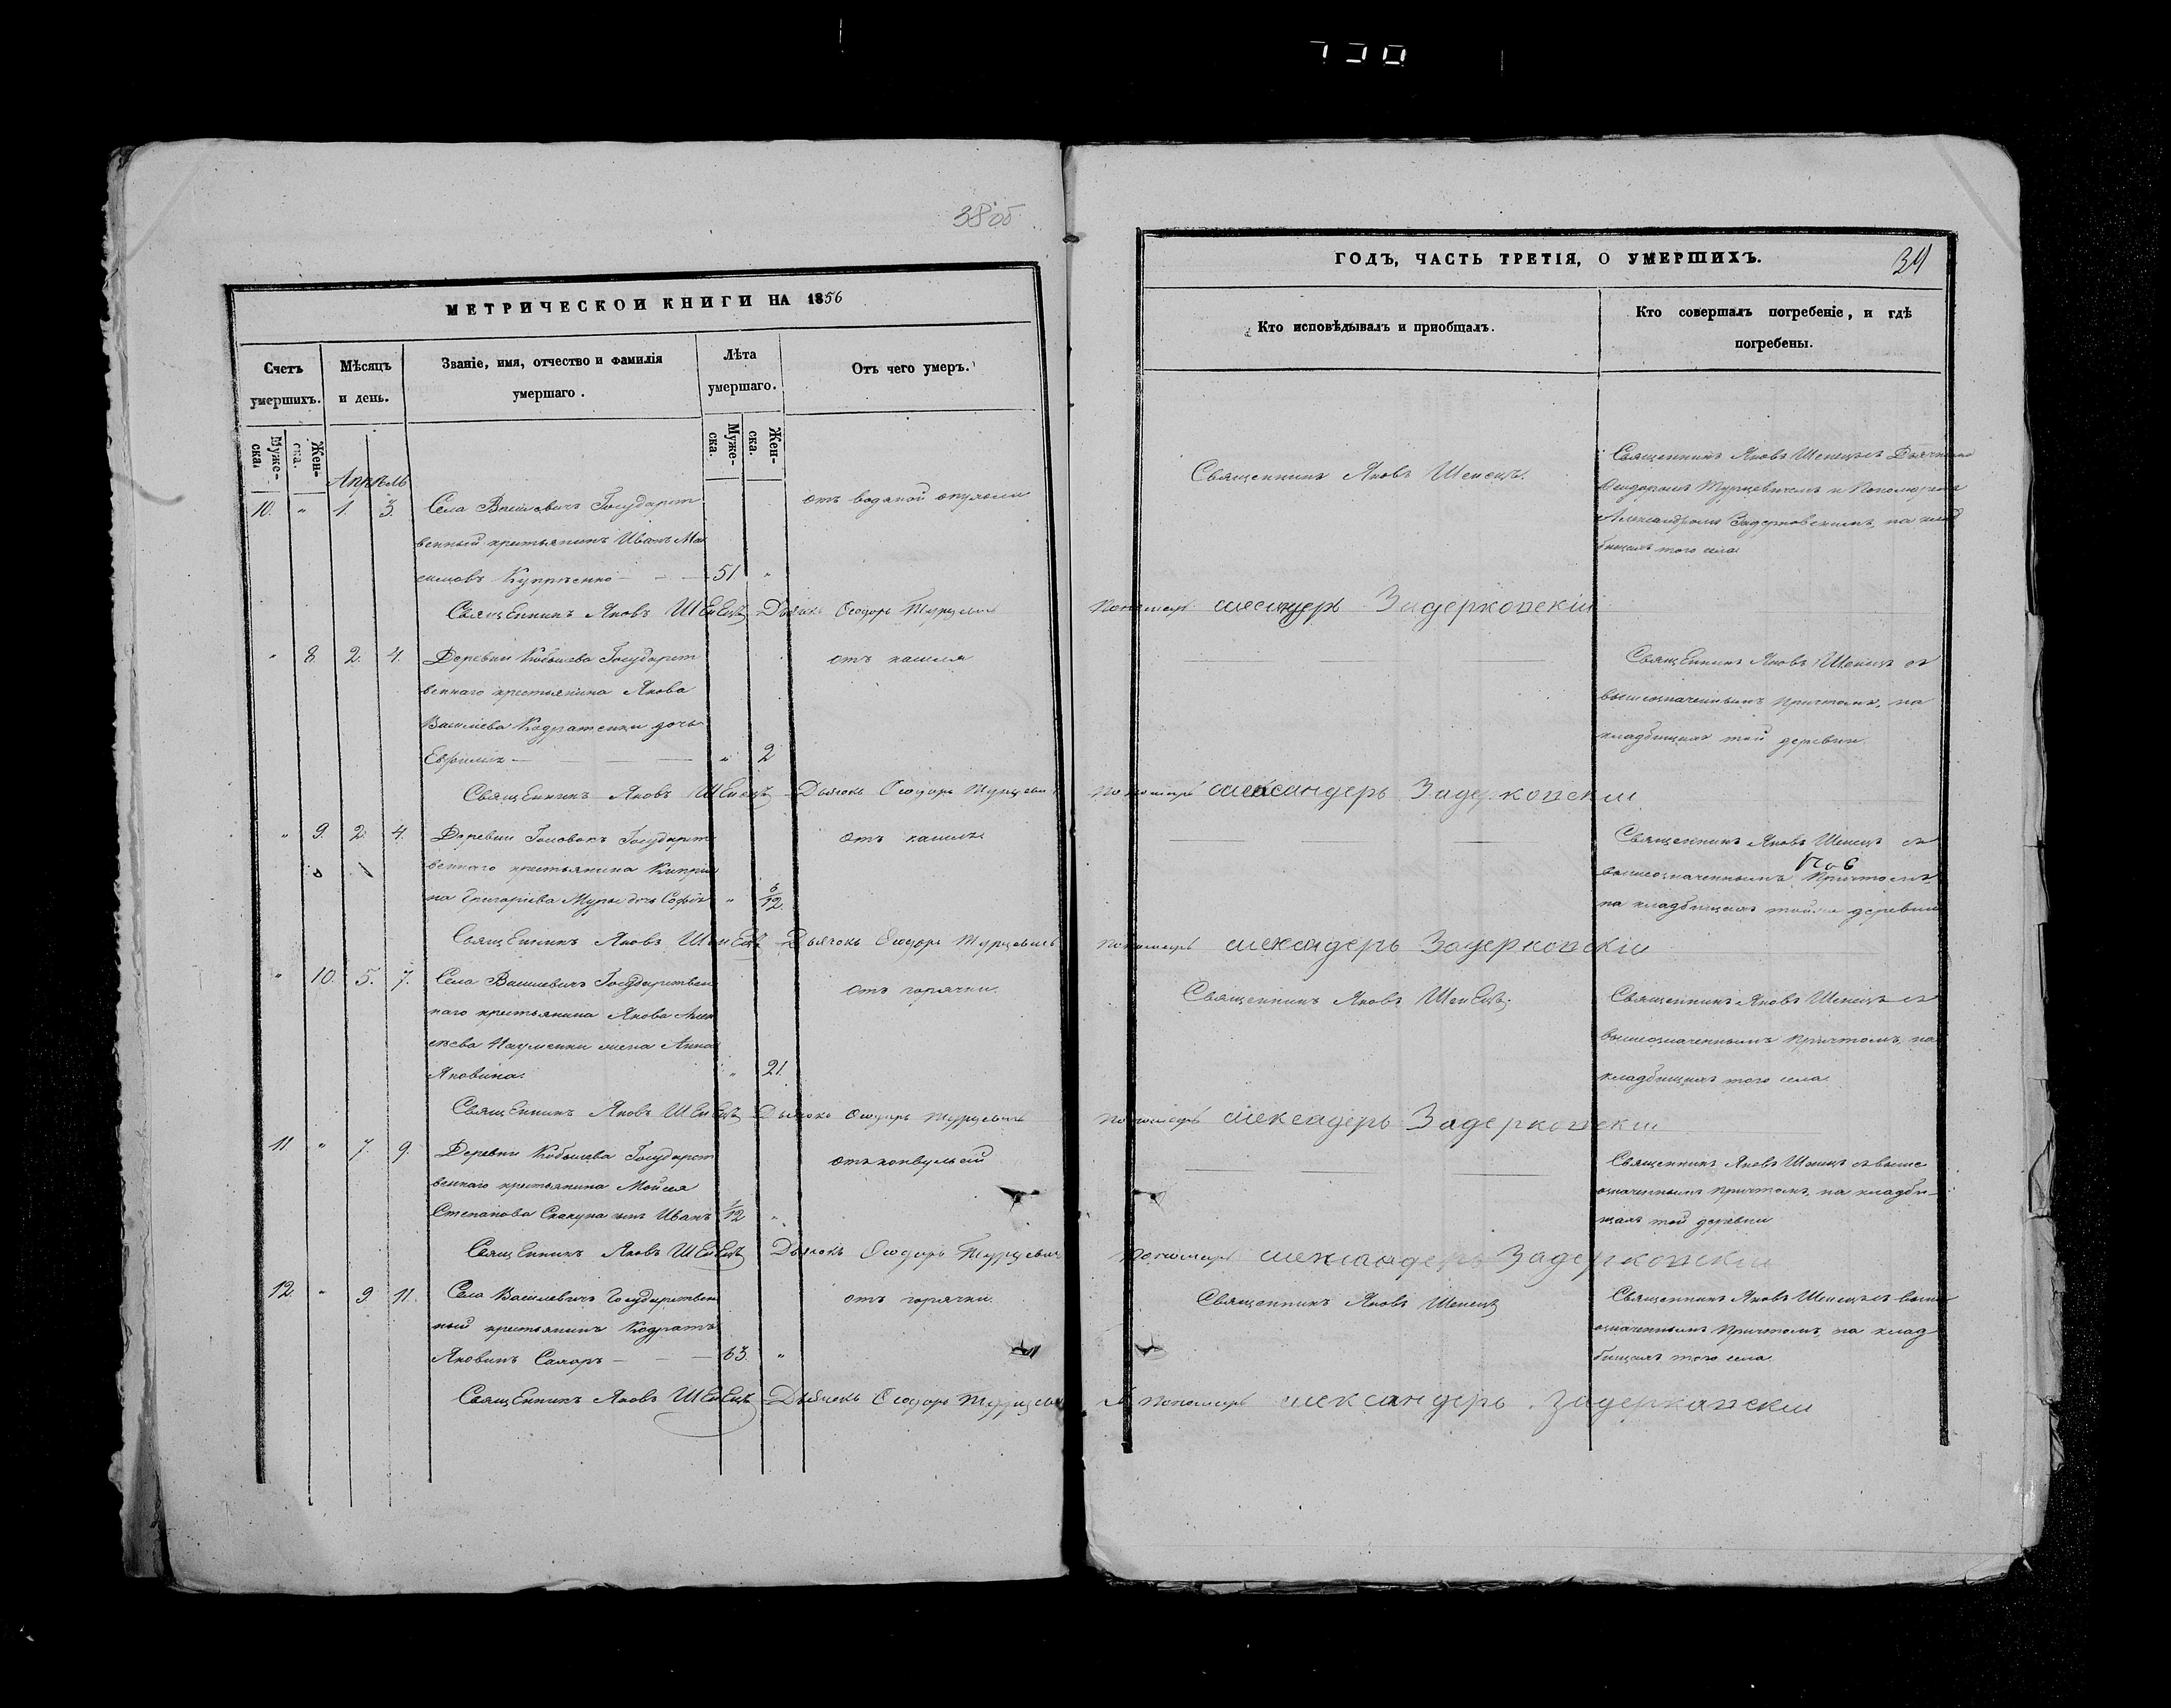 38 об
МЕТРИЧЕСКОЙ КНИГИ НА 1856
Счетъ умершихъ.
Мѣсяцъ и день.
Званіе, имя, отчество и фамилія умершаго.
Лѣта умершаго.
Отъ чего умеръ.
Муже-ска.
Жен-ска.
Муже-ска.
Жен-ска.
Апрѣль
10. " 1. 3. Села Василевичъ Государст
венный крестьянинъ Иванъ Мак
симовъ Купрѣенко — — 51 "
отъ водяной опухоли
Священникъ Яковъ Шенецъ Дьячокъ Ѳеодоръ Турцевичъ
" 8. 2. 4. Деревни Кобылева Государст
веннаго крестьянина Якова
Василіева Кодратенки дочь
— — — " 2
отъ кашля
Священникъ Яковъ Шенецъ Дьячокъ Ѳеодоръ Турцевичъ
" 9. 2. 4. Деревни Головокъ Государст
веннаго крестьянина Кипріа
на Григоріева Муры дочь Софія " 6/12.
отъ кашля
Священникъ Яковъ Шенецъ Дьячокъ Ѳеодоръ Турцевичъ
" 10. 5. 7. Села Василевичъ Государствен
наго крестьянина Якова Алек
сѣева Науменки жена Анна
Яковина. " 21.
отъ горячки.
Священникъ Яковъ Шенецъ Дьячокъ Ѳеодоръ Турцевичъ
11 " 7. 9. Деревни Кобылева Государст
веннаго крестьянина Мойсея
Степанова Скакуна сынъ Иванъ 1/12 "
отъ конвульсій
Священникъ Яковъ Шенецъ Дьячокъ Ѳеодоръ Турцевичъ
12. " 9 11. Села Василевичъ Государствен
ный крестьянинъ Кодратъ
Яковинъ Сахаръ — — 63. "
отъ горячки.
Священникъ Яковъ Шенецъ Дьячокъ Ѳеодоръ Турцевичъ
ГОДЪ, ЧАСТЬ ТРЕТІЯ, О УМЕРШИХЪ.
39
Кто исповѣдывалъ и пріобщалъ.
Кто совершалъ погребеніе, и гдѣ
погребены.
Священникъ Яковъ Шенецъ.
Священникъ Яковъ Шенецъ съ Дьячкомъ
Ѳеодоромъ Турцевичемъ и Пономаремъ
Александромъ Задерковскимъ, на клад
бищахъ того села.
Пономарь Александеръ Задерковскій
Священникъ Яковъ Шенецъ съ
вышеозначеннымъ Причтомъ, на
кладбищахъ той деревни.
Пономарь Александеръ Задерковскій
Священникъ Яковъ Шенецъ съ
вышеозначеннымъ Причтомъ,
на кладбищахъ той деревни
Пономарь Александеръ Задерковскій
Священникъ Яковъ Шенецъ.
Священникъ Яковъ Шенецъ съ
вышеозначеннымъ Причтомъ, на
кладбищахъ того села.
Пономарь Александеръ Задерковскій
Священникъ Яковъ Шенецъ съ выше
означеннымъ Причтомъ, на кладби-
щахъ той деревни
Пономарь Александеръ Задерковскій
Священникъ Яковъ Шенецъ
Священникъ Яковъ Шенецъ съ выше
означеннымъ Причтомъ, на клад
бищахъ того села.
Пономарь Александеръ Задерковскій